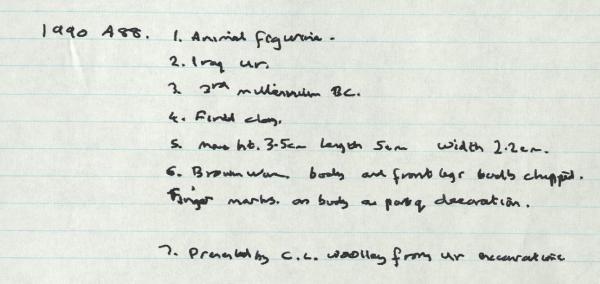 1990 A88. 1. Animal figurine.
2. Iraq Ur.
3. 3rd millennium BC.
4. Fired clay.
5. max ht. 3.5cm length 5cm width 2.2cm.
6. Brown ware body and front legs badly chipped.
Finger marks on body as part of decoration.
7. Presented by C.L. Woolley from Ur excavations